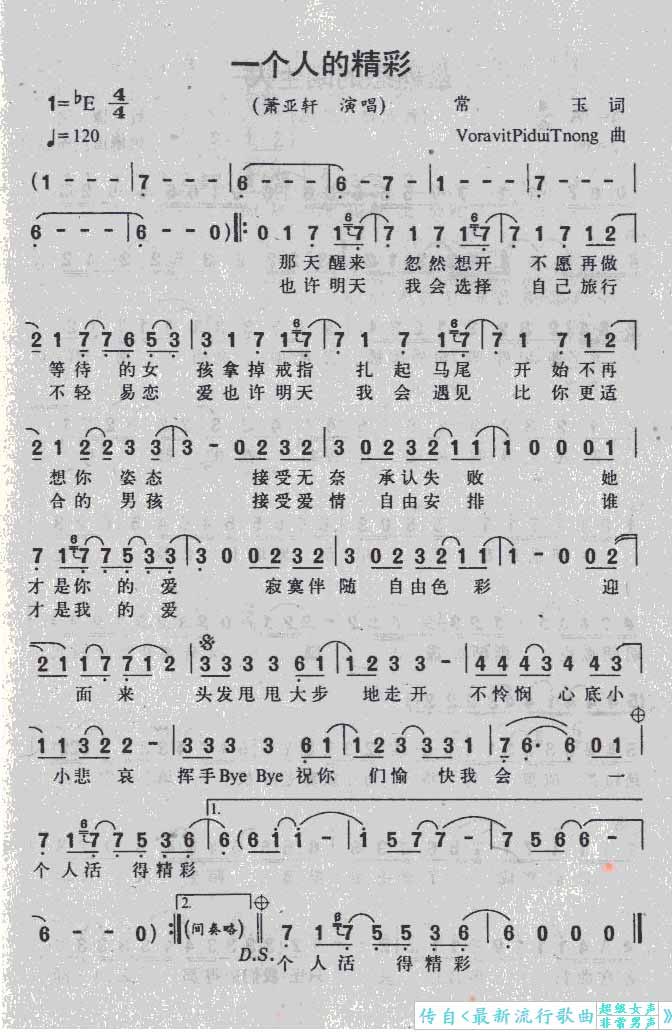 一个人的精彩
1=♭E 4/4 (萧亚轩 演唱) 常 玉 词
♩=120 VoravitPiduiTnong 曲
(1 - - - | 7 - - - | 6 - - - | 6 - 7 - | 1 - - - | 7 - - - |
6 - - - | 6 - - 0) ‖: 0 1 7 1 6 7 | 7 1 7 1 6 7 | 7 1 7 1 2 |
那天醒来 忽然想开 不愿再做
也许明天 我会选择 自己旅行
2 1 7 7 6 5 3 | 3 1 7 1 6 7 | 7 1 7 1 6 7 | 7 1 7 1 2 |
等待 的女 孩拿掉戒指 扎起马尾 开始不再
不轻 易恋 爱也许明天 我会遇见 比你更适
2 1 2 2 3 3 | 3 - 0 2 3 2 | 3 0 2 3 2 1 1 | 1 0 0 0 1 |
想你 姿态 接受无奈 承认失败 她
合的 男孩 接受爱情 自由安排 谁
7 1 6 7 7 5 3 3 | 3 0 0 2 3 2 | 3 0 2 3 2 1 1 | 1 - 0 0 2 |
才是你 的爱 寂寞伴随 自由色彩 迎
才是我 的爱
2 1 1 7 7 1 2 | 3 3 3 3 3 6 1 | 1 2 3 3 - | 4 4 4 3 4 4 3 |
面来 头发甩甩大步 地走开 不怜悯 心底小
1 1 3 2 2 - | 3 3 3 3 3 6 1 | 1 2 3 3 3 1 | 7 6· 6 0 1 |
小悲哀 挥手Bye Bye祝你 们愉快我会 一
1.
7 1 6 7 7 5 3 6 | 6 (6 1 1 - | 1 5 7 7 - | 7 5 6 6 - |
个人活 得精彩
2.
6 - - 0) :‖ (间奏略) ‖ 7 1 6 7 5 5 3 6 | 6 0 0 0 ‖
D.S. 个人活 得精彩
传自<最新流行歌曲 超级女声
非常男声 》